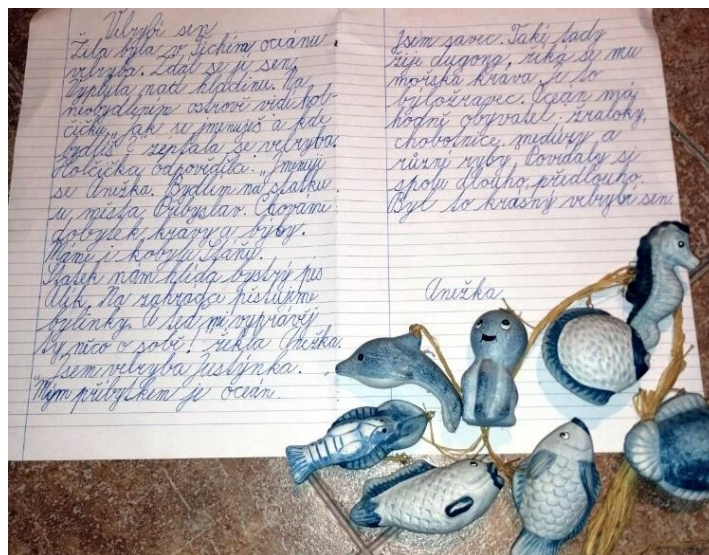 Velrybí sen
Žila byla v Tichém oceánu
velryba. Zdál se jí sen.
Vyplula nad hladinu. Na
neobydleném ostrově vidí hol-
čičku. „Jak se jmenuješ a kde
bydlíš?" zeptala se velryba.
Holčička odpověděla: „Jmenuji
se Anežka. Bydlím na statku
u města Přibyslav. Chováme
dobytek, krávy a býky.
Máme i kobylu Sáňu.
Statek nám hlídá bystrý pes
Alík. Na zahrádce pěstujeme
bylinky. A teď mi vyprávěj
ty něco o sobě! řekla Anežka.
Jsem velryba Justýnka.
"Mým příbytkem je oceán.
Jsem savec. Také tady
žije dugong, říká se mu
mořská kráva. Je to
býložravec. Oceán má
hodně obyvatel: žraloky,
chobotnice, medúzy a
různé ryby. Povídaly si
spolu dlouho, předlouho.
Byl to krásný velrybí sen.
Anežka